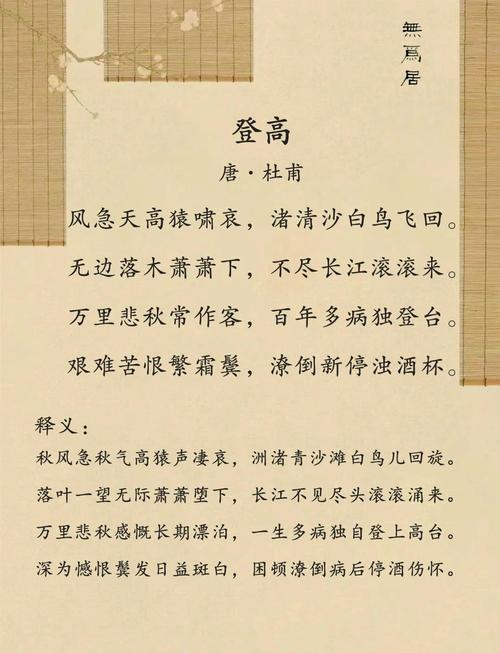 無為居
登高
唐·杜甫
风急天高猿啸哀，渚清沙白鸟飞回。
无边落木萧萧下，不尽长江滚滚来。
万里悲秋常作客，百年多病独登台。
艰难苦恨繁霜鬓，潦倒新停浊酒杯。
释义：
秋风急秋气高猿声凄哀，洲渚青沙滩白鸟儿回旋。
落叶一望无际萧萧堕下，长江不见尽头滚滚涌来。
万里悲秋感慨长期漂泊，一生多病独自登上高台。
深为憾恨鬓发日益斑白，困顿潦倒病后停酒伤怀。